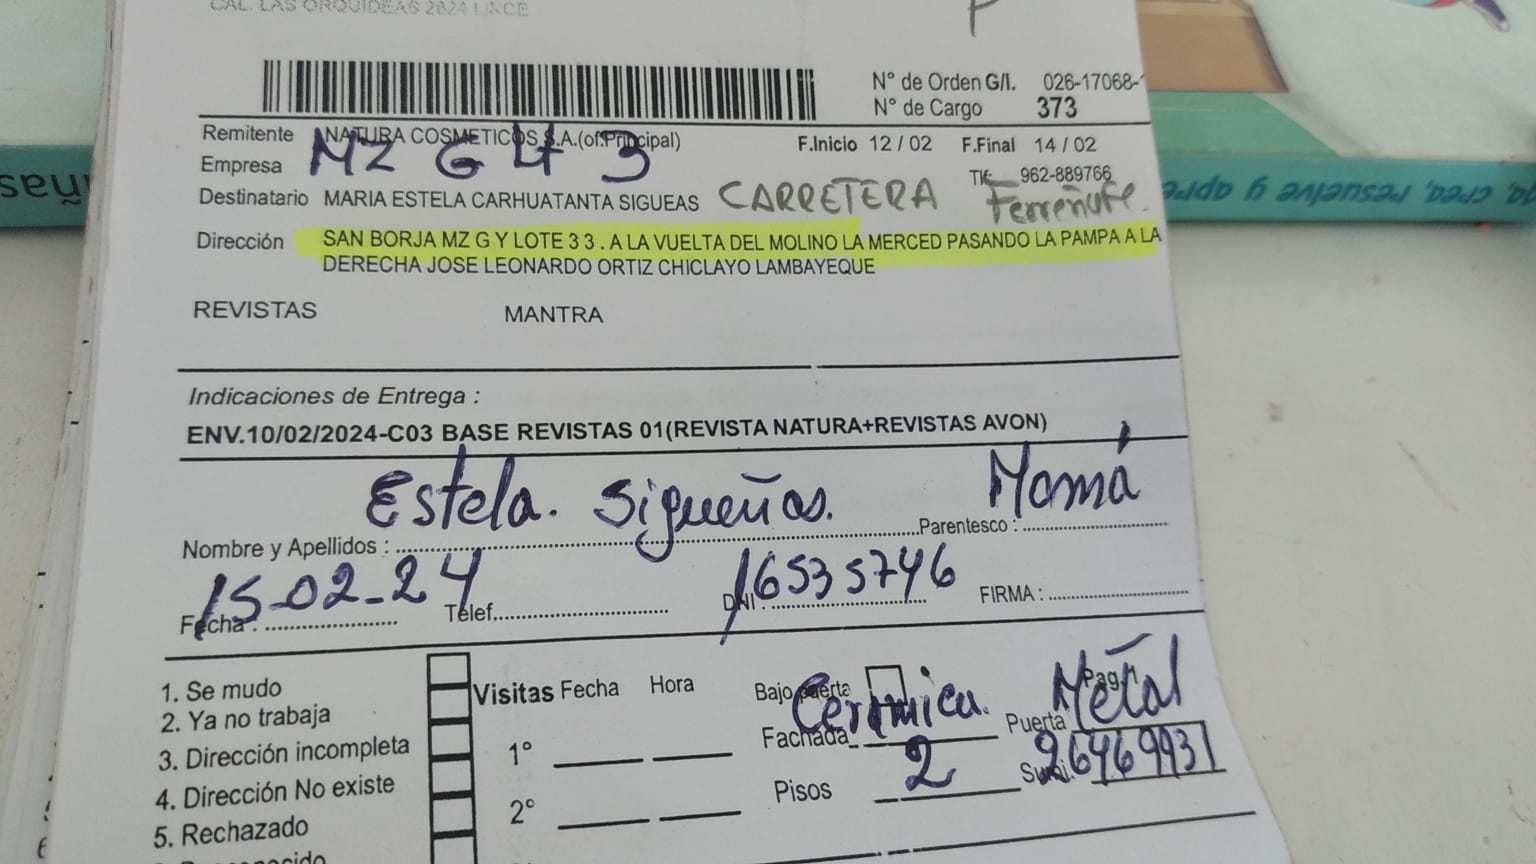 CAL. LAS ORQUIDEAS 2824 LINCE
N° de Orden G/I. 026-17068-
N° de Cargo 373
Remitente NATURA COSMETICOS S.A.(of.Principal) F.Inicio 12 / 02 F.Final 14 / 02
Empresa MZ G Lt 3 Tlf: 962-889766
Destinatario MARIA ESTELA CARHUATANTA SIGUEAS CARRETERA Ferreñafe.
Dirección SAN BORJA MZ G Y LOTE 3 3 . A LA VUELTA DEL MOLINO LA MERCED PASANDO LA PAMPA A LA
DERECHA JOSE LEONARDO ORTIZ CHICLAYO LAMBAYEQUE
REVISTAS MANTRA
Indicaciones de Entrega :
ENV.10/02/2024-C03 BASE REVISTAS 01(REVISTA NATURA+REVISTAS AVON)
Nombre y Apellidos : Estela. Sigueñas. Parentesco : Mamá
Fecha : 15-02-24 Telef. DNI : 16535746 FIRMA :
1. Se mudo
2. Ya no trabaja
3. Dirección incompleta
4. Dirección No existe
5. Rechazado
Visitas Fecha Hora
1°
2°
Bajo puerta
Fachada Ceramica. Puerta Metal
Pisos 2 Sumi. 26469931
crea, resuelve y apre